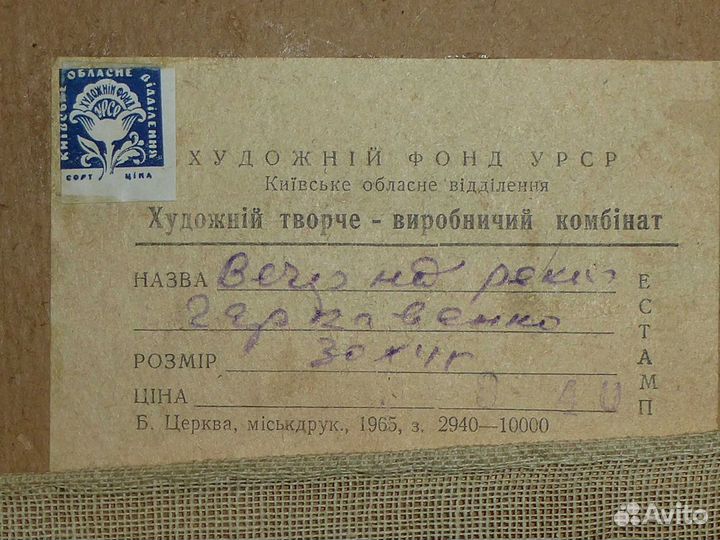 КИЇВСЬКЕ ОБЛАСНЕ ВІДДІЛЕННЯ
ХУДОЖНІЙ ФОНД
УРСР
СОРТ ЦІНА
ХУДОЖНІЙ ФОНД УРСР
Київське обласне відділення
Художній творче - виробничий комбінат
НАЗВА Вечер над
РОЗМІР 30х4
ЦІНА
ЕСТАМП
Б. Церква, міськдрук., 1965, з. 2940—10000
Avito